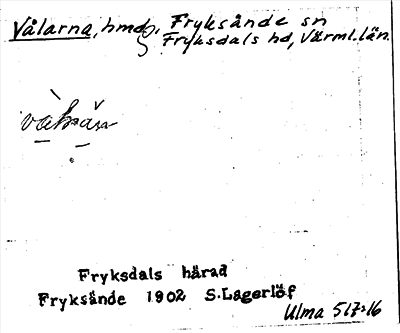 Vålarna, hmd, Fryksände sn
Fryksdals hd, Värml. län.
Fryksdals härad
Fryksände 1902 S. Lagerlöf
Ulma 517:16